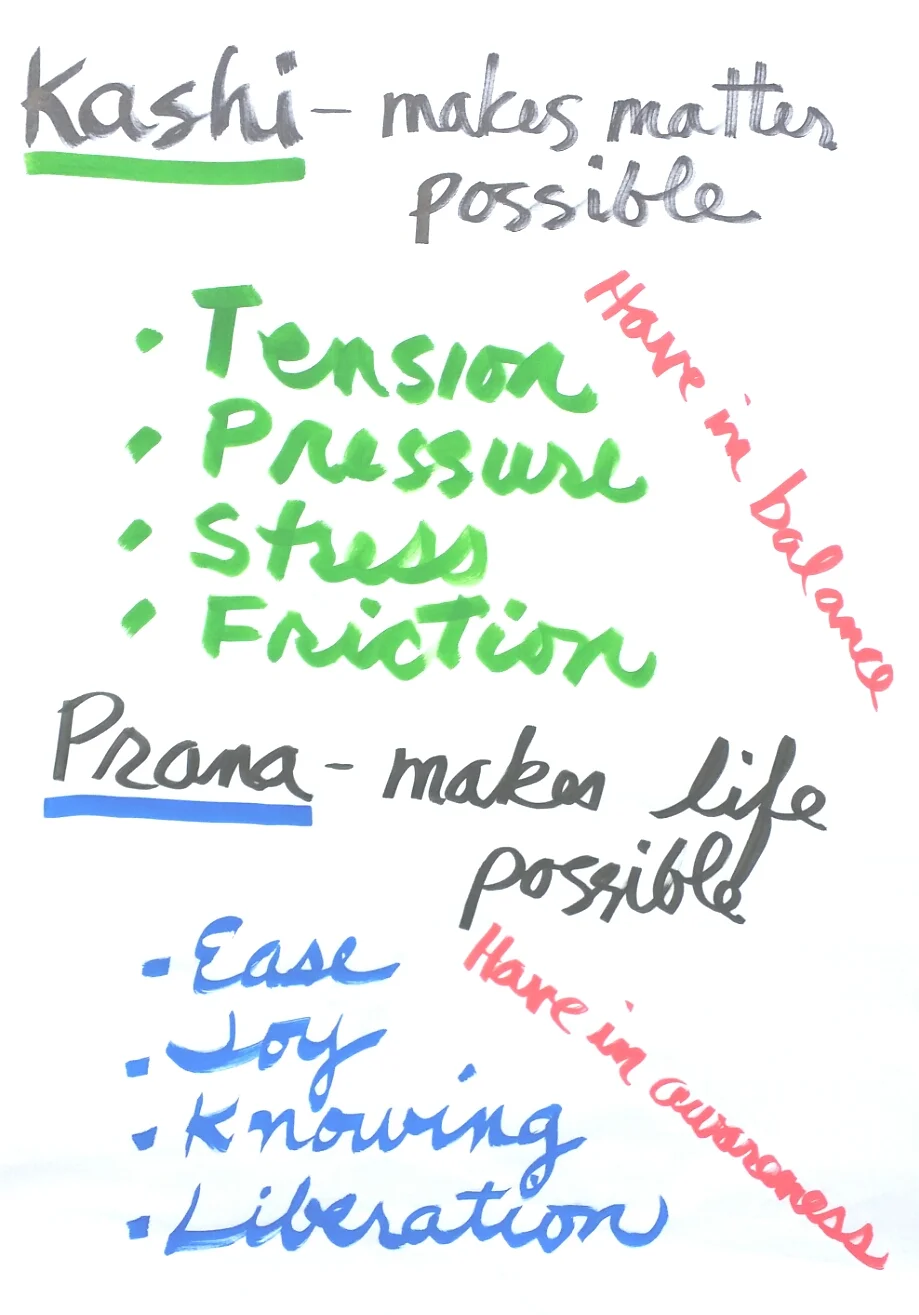 Kashi - makes matter
possible
Have in balance
• Tension
• Pressure
• Stress
• Friction
Prana - makes life
possible
Have in awareness
• Ease
• Joy
• Knowing
• Liberation